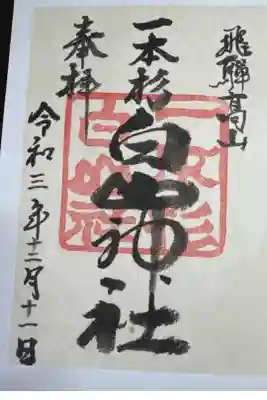 飛騨高山
一本杉
白山神社
奉拝
令和三年十二月十一日